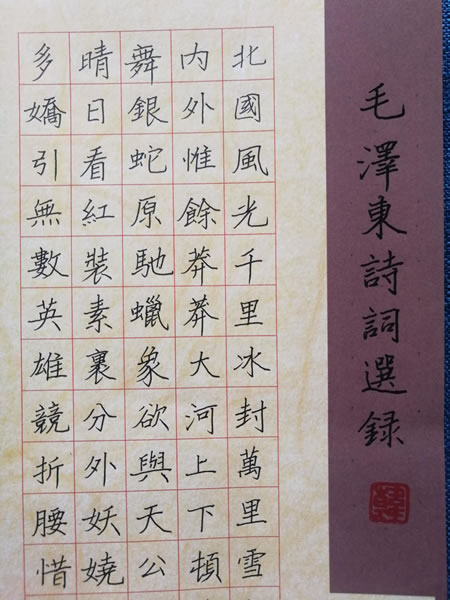 毛澤東詩詞選録
北國風光千里冰封萬里雪
内外惟餘莽莽大河上下頓
舞銀蛇原馳蠟象欲與天公
晴日看紅裝素裹分外妖嬈
多嬌引無數英雄競折腰惜